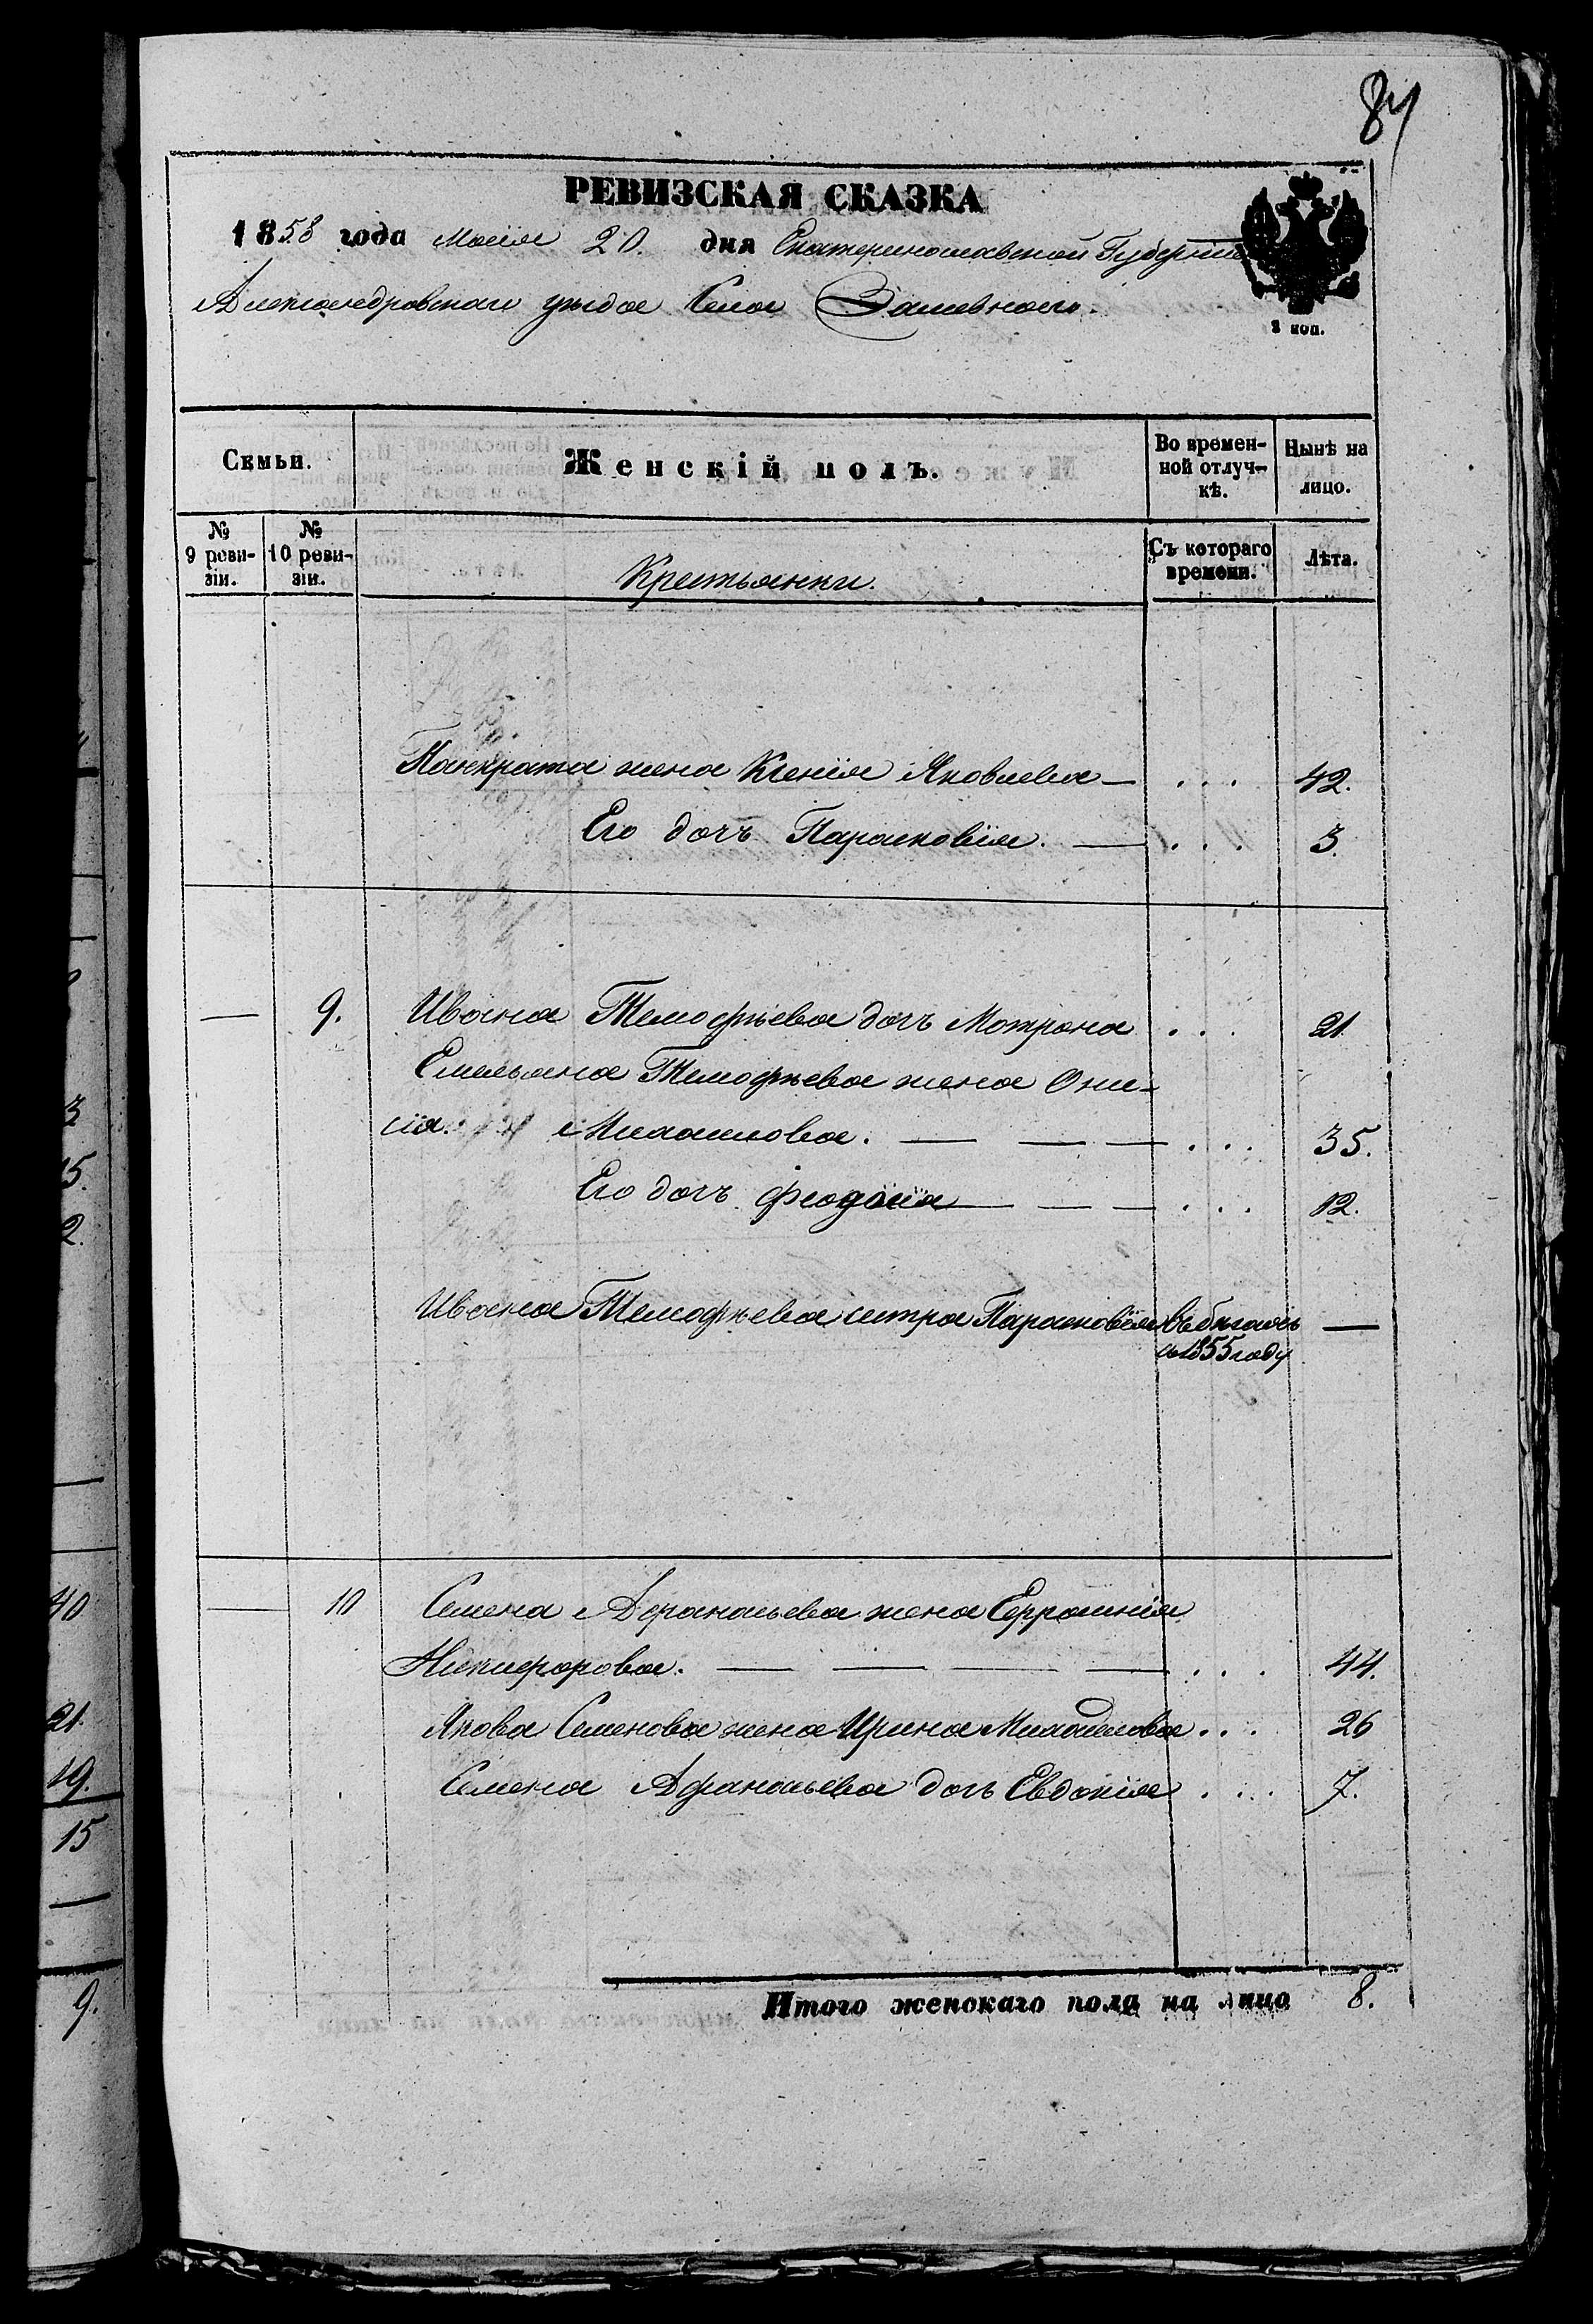 84
РЕВИЗСКАЯ СКАЗКА
1858 года Маія 20. дня Екатеринославской Губерніи
Александровскаго уѣзда Села
2 коп.
Семьи.
Женскій полъ.
Во времен-
ной отлуч-
кѣ.
Нынѣ на
лицо.
№
9 реви-
зіи.
№
10 реви-
зіи.
Крестьянки.
Съ котораго
времени.
Лѣта.
Панкрата жена Ксенія Яковлева — . . . 42.
Его дочъ Парасковія. — . . . 3.
— 9. Ивана Тимофѣева дочъ Мотрона . . . 21.
Емельяна Тимофѣева жена Они-
сія Михайлова. — — — . . . 35.
Его дочъ Феодосія — — — . . . 12.
Ивана Тимофѣева сестра Парасковія въ бѣгахъ —
съ 1855 году
— 10 Семена Афанасьева жена Ефросинія
Никифорова. — — — — . . . 44.
Якова Семенова жена Ирина Михайлова . . . 26
Семена Афанасьева дочъ Евдокія . . . 7.
Итого женскаго пола на лицо 8.
3
15.
2.
40
21.
19.
15
—
9.